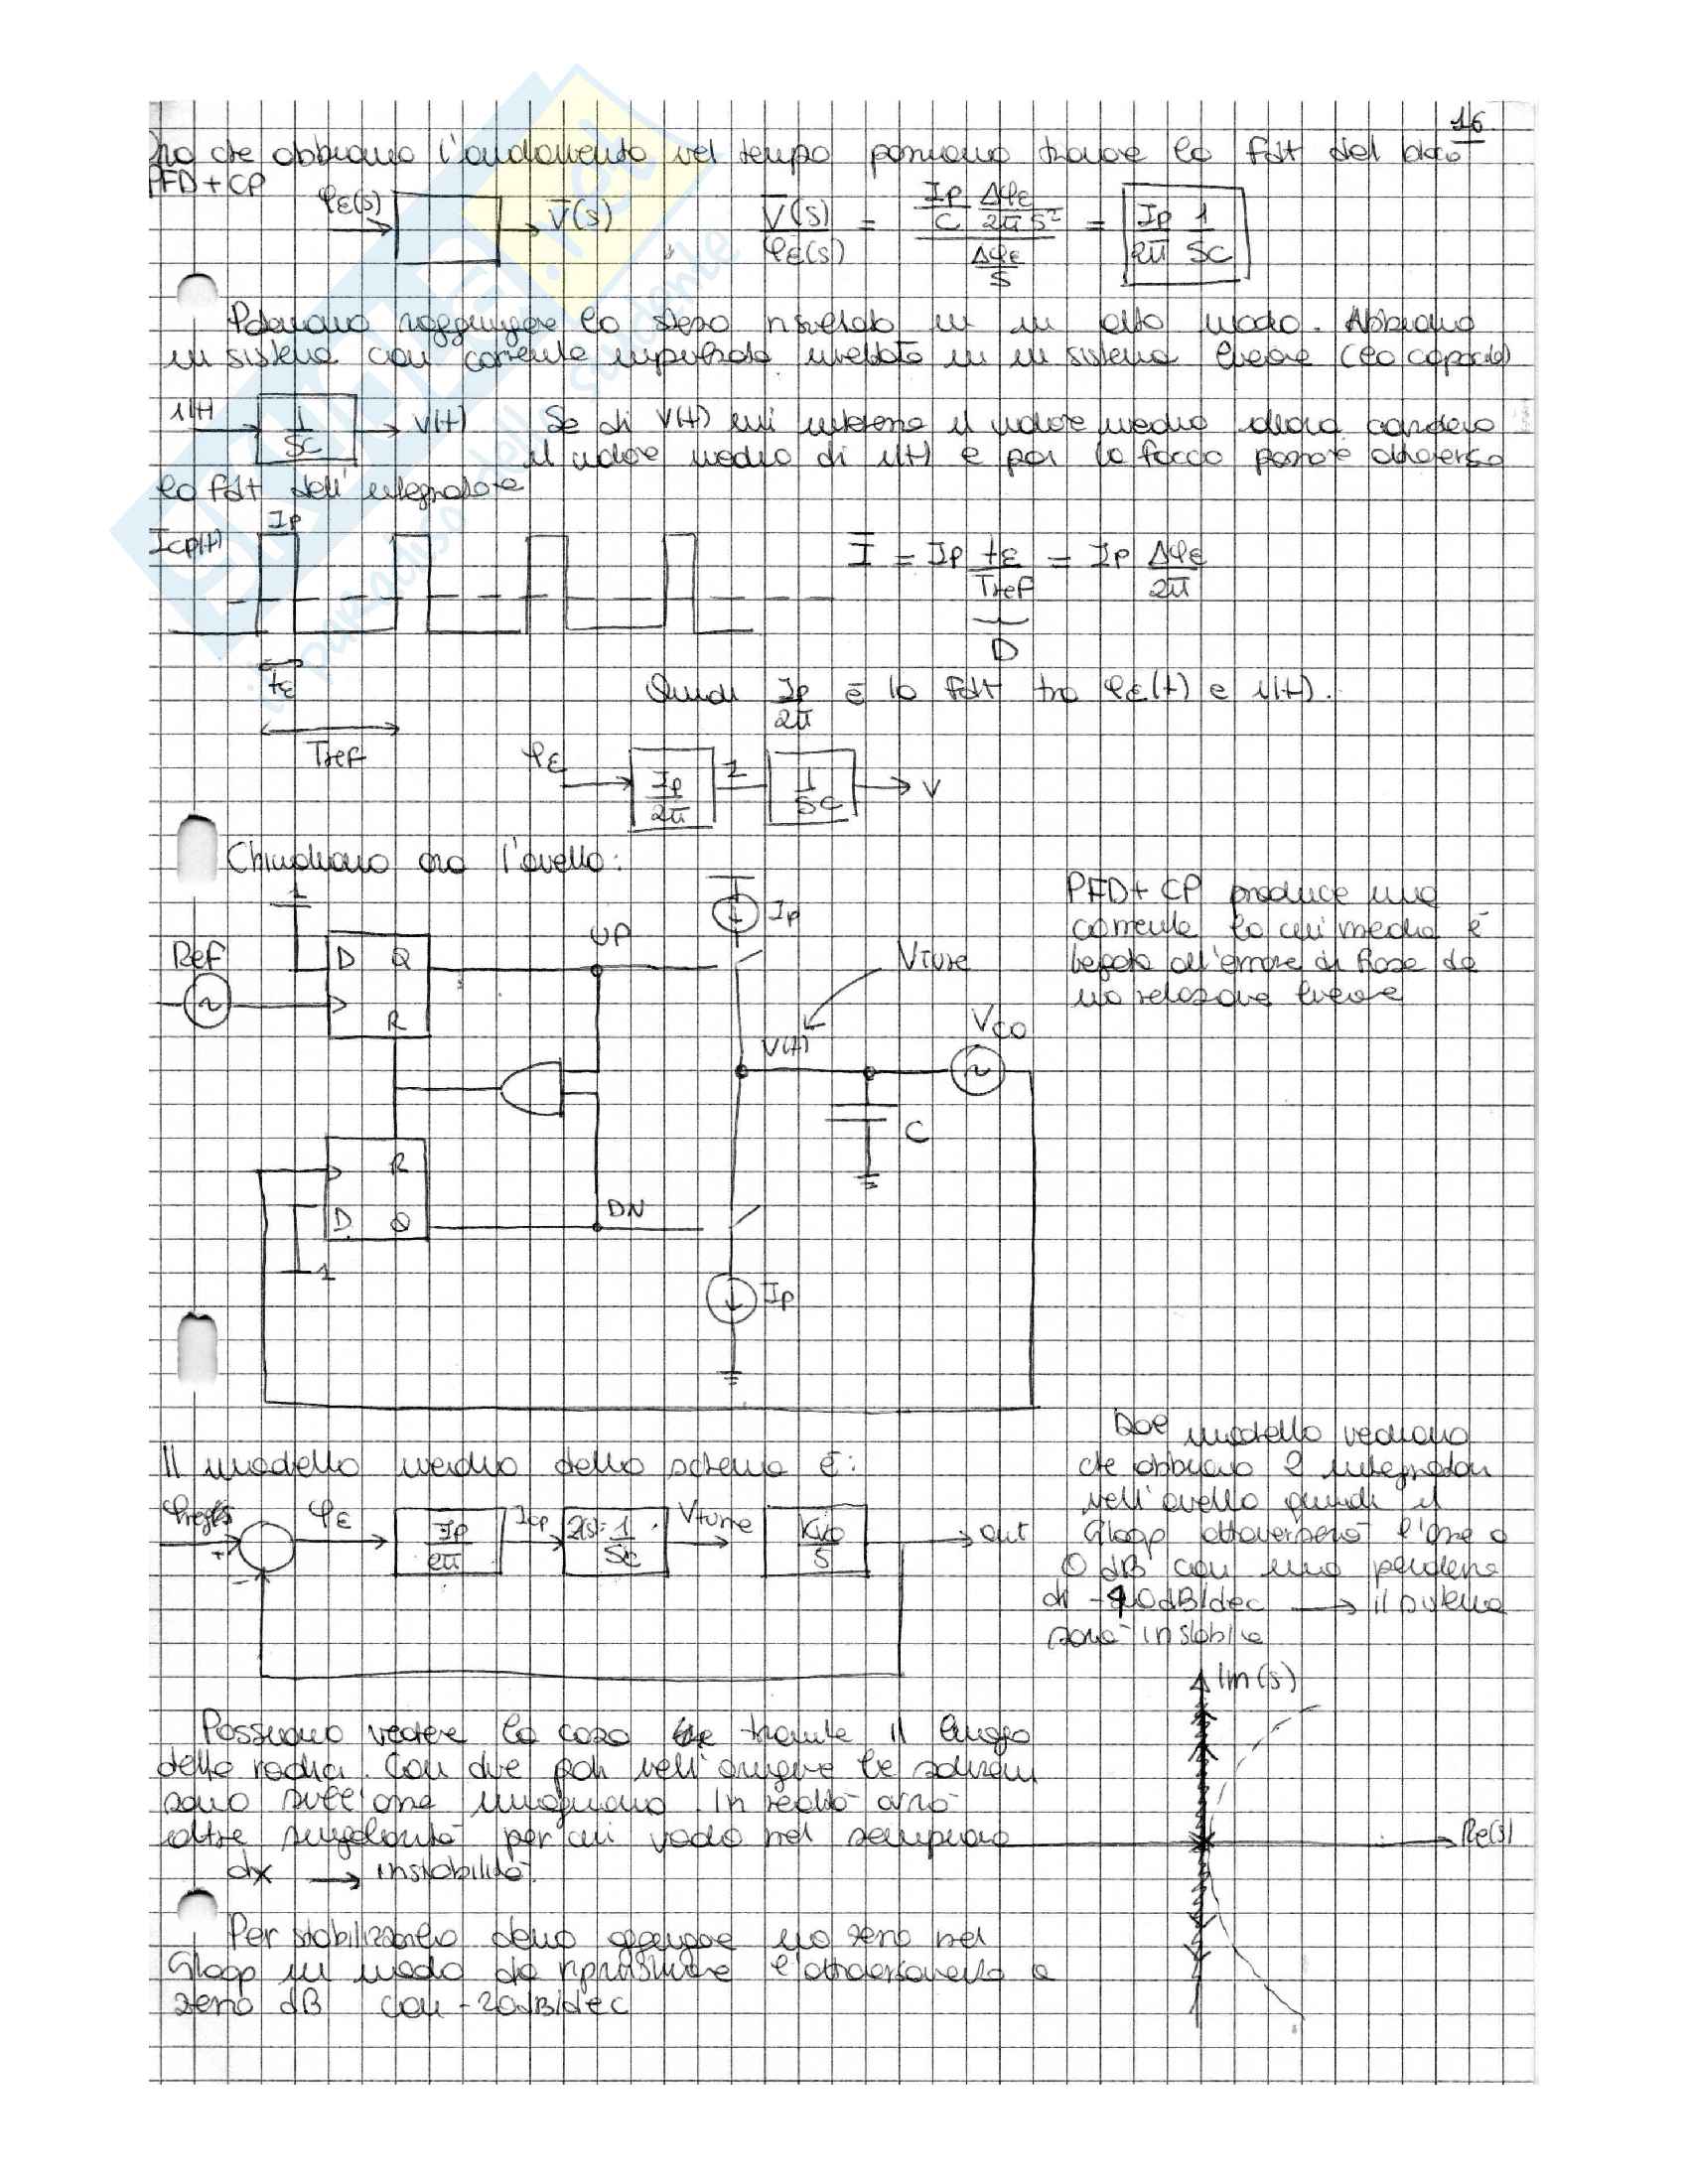 16.
Ora che abbiamo l'andamento nel tempo possiamo trovare la fdt del blocco
PFD + CP
φε(s) V̄(s) V̄(s)/φε(s) = (Ip/C Δφε/2π s²)/(Δφε/s) = Ip/2π 1/SC
Potevamo raggiungere lo stesso risultato in un altro modo. Abbiamo
un sistema con corrente impulsata iniettata in un sistema lineare (la capacità)
i(t) 1/SC V(t) Se di V(t) mi interessa il valore medio allora considero
il valore medio di i(t) e poi lo faccio passare attraverso
la fdt dell'integratore
Ip
Icp(t) Ī = Ip tε/Tref = Ip Δφε/2π
D
tε
Quindi Ip/2π è la fdt tra φε(t) e i(t).
Tref
φε Ip/2π I 1/SC V
Chiudiamo ora l'anello:
PFD + CP produce una
corrente la cui media è
legata all'errore di fase da
una relazione lineare
1
Ref D Q UP Ip Vtune
R
V(t) VCO
C
R
D Q DN
1
Ip
Dal modello vediamo
Il modello medio dello schema è:
che abbiamo 2 integratori
nell'anello quindi il
φε Ip/2π Icp Z(s)=1/SC Vtune Kvco/S out
Gloop attraverserà l'asse a
0 dB con una pendenza
di -40dB/dec → il sistema
sarà instabile
+
-
Im(s)
Possiamo vedere la cosa tramite il luogo
delle radici. Con due poli nell'origine le soluzioni
sono sull'asse immaginario. In realtà avrò
altre singolarità per cui vado nel semipiano
Re(s)
dx → instabilità.
Per stabilizzarlo devo aggiungere uno zero nel
Gloop in modo da ripristinare l'attraversamento a
zero dB con -20dB/dec